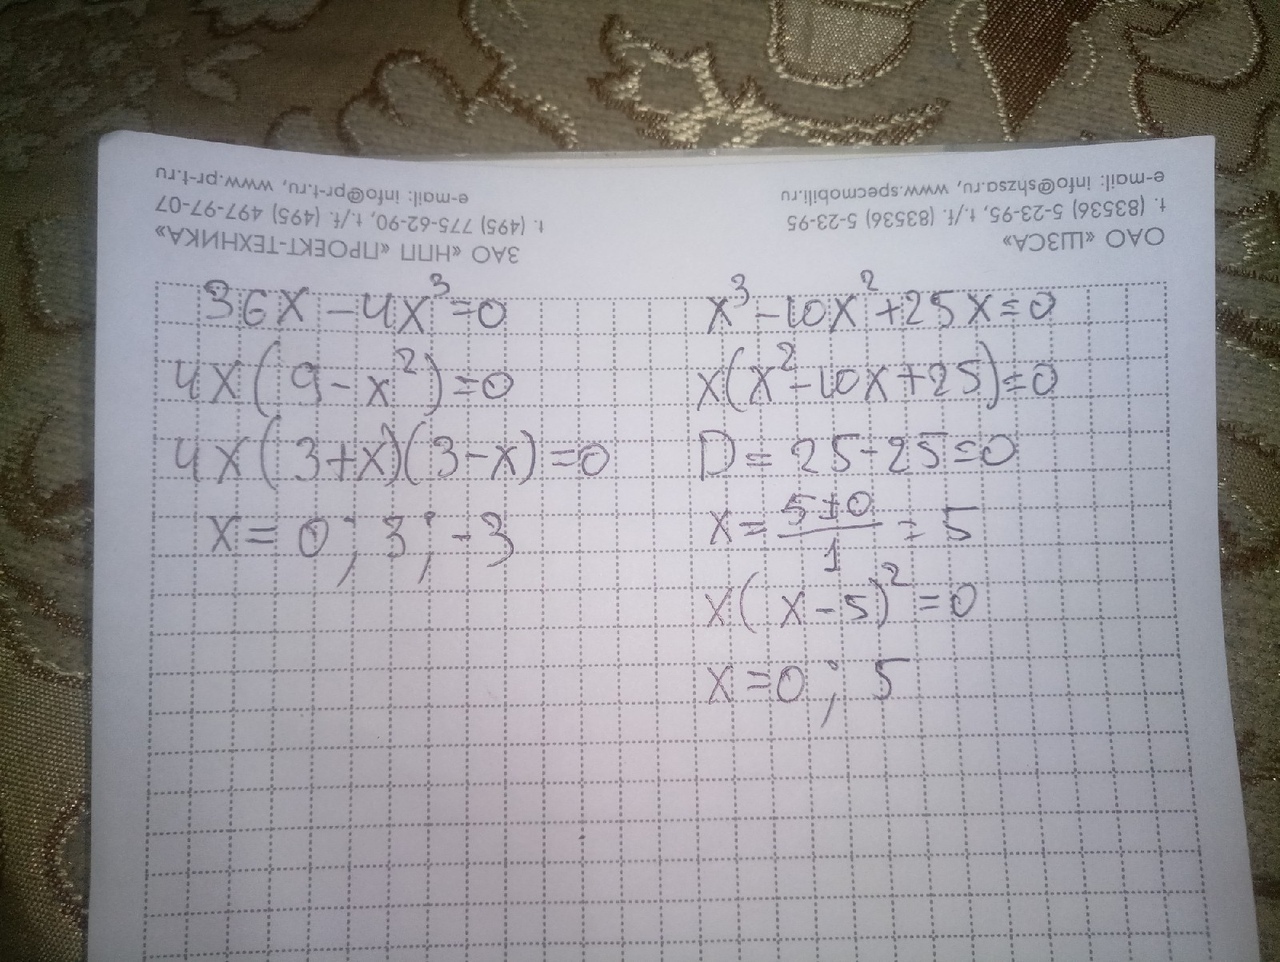 ОАО «ШЗСА»
t. (83536) 5-23-95, t./f. (83536) 5-23-95
e-mail: info@shzsa.ru, www.specmobil.ru
ЗАО «НПП «ПРОЕКТ-ТЕХНИКА»
t. (495) 775-62-90, t./f. (495) 497-97-07
e-mail: info@pr-t.ru, www.pr-t.ru
36x - 4x³ = 0
4x(9 - x²) = 0
4x(3+x)(3-x) = 0
x = 0; 3; -3
x³ - 10x² + 25x = 0
x(x² - 10x + 25) = 0
D = 25 - 25 = 0
x = (5±0)/1 = 5
x(x - 5)² = 0
x = 0; 5